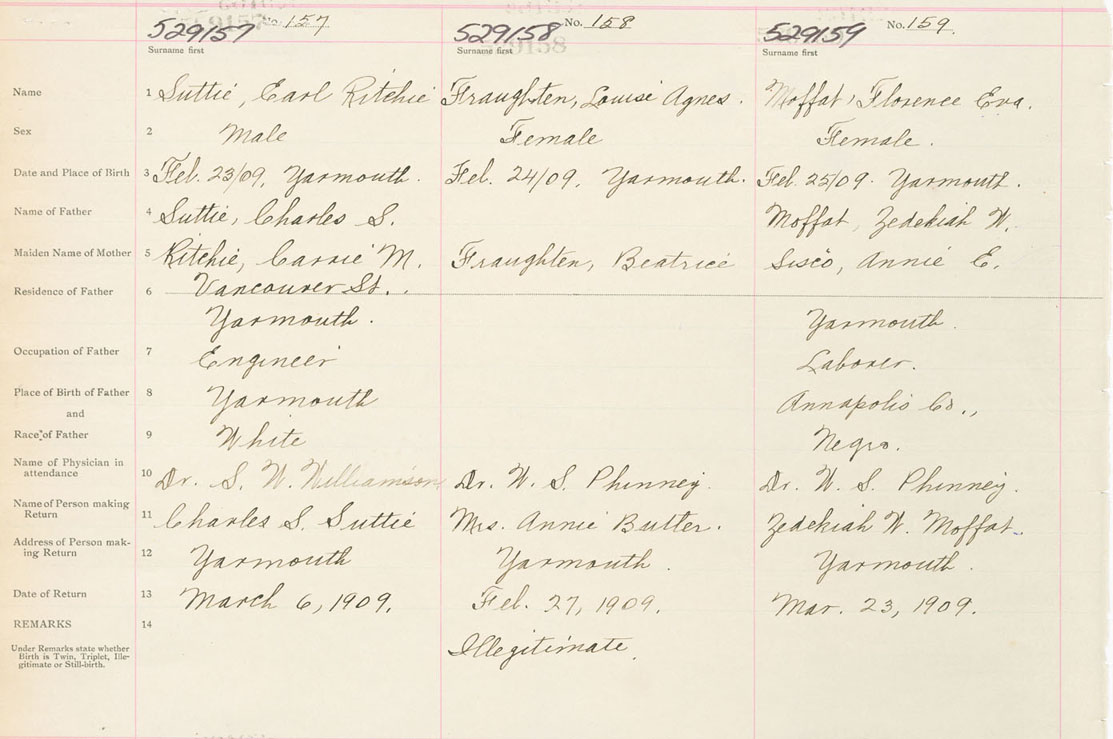 529157 No. 157 529158 No. 158 529159 No. 159.
Surname first Surname first Surname first
Name 1 Suttie, Earl Ritchie Fraughten, Louise Agnes. Moffat, Florence Eva.
Sex 2 Male Female Female.
Date and Place of Birth 3 Feb. 23/09, Yarmouth. Feb. 24/09, Yarmouth. Feb. 25/09. Yarmouth.
Name of Father 4 Suttie, Charles S. Moffat, Zedekiah W.
Maiden Name of Mother 5 Ritchie, Carrie M. Fraughten, Beatrice Sisco, Annie E.
Residence of Father 6 Vancouver St.
Yarmouth. Yarmouth.
Occupation of Father 7 Engineer Laborer.
Place of Birth of Father 8 Yarmouth Annapolis Co.,
and
Race of Father 9 White Negro.
Name of Physician in
attendance 10 Dr. S. W. Williamson Dr. W. S. Phinney. Dr. W. S. Phinney.
Name of Person making
Return 11 Charles S. Suttie Mrs. Annie Butler. Zedekiah W. Moffat.
Address of Person mak-
ing Return 12 Yarmouth Yarmouth. Yarmouth.
Date of Return 13 March 6, 1909. Feb. 27, 1909. Mar. 23, 1909.
REMARKS 14
Under Remarks state whether
Birth is Twin, Triplet, Ille-
gitimate or Still-birth.
Illegitimate.